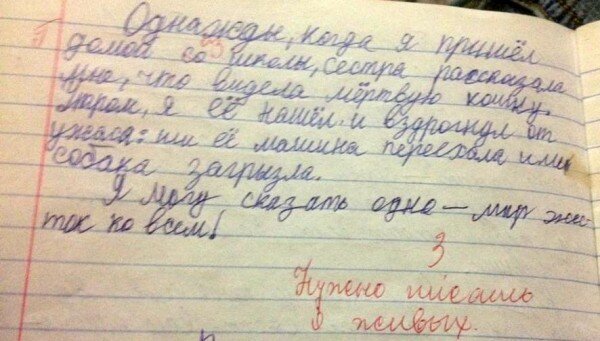 Однажды, когда я пришёл
домой со школы, сестра рассказала
мне, что видела мёртвую кошку.
Утром, я её нашёл и вздрогнул от
ужаса: ти её машина переехала или
собака загрызла.
Я могу сказать одно — мир жес-
ток ко всем!
3
Нужно писать
о живых.